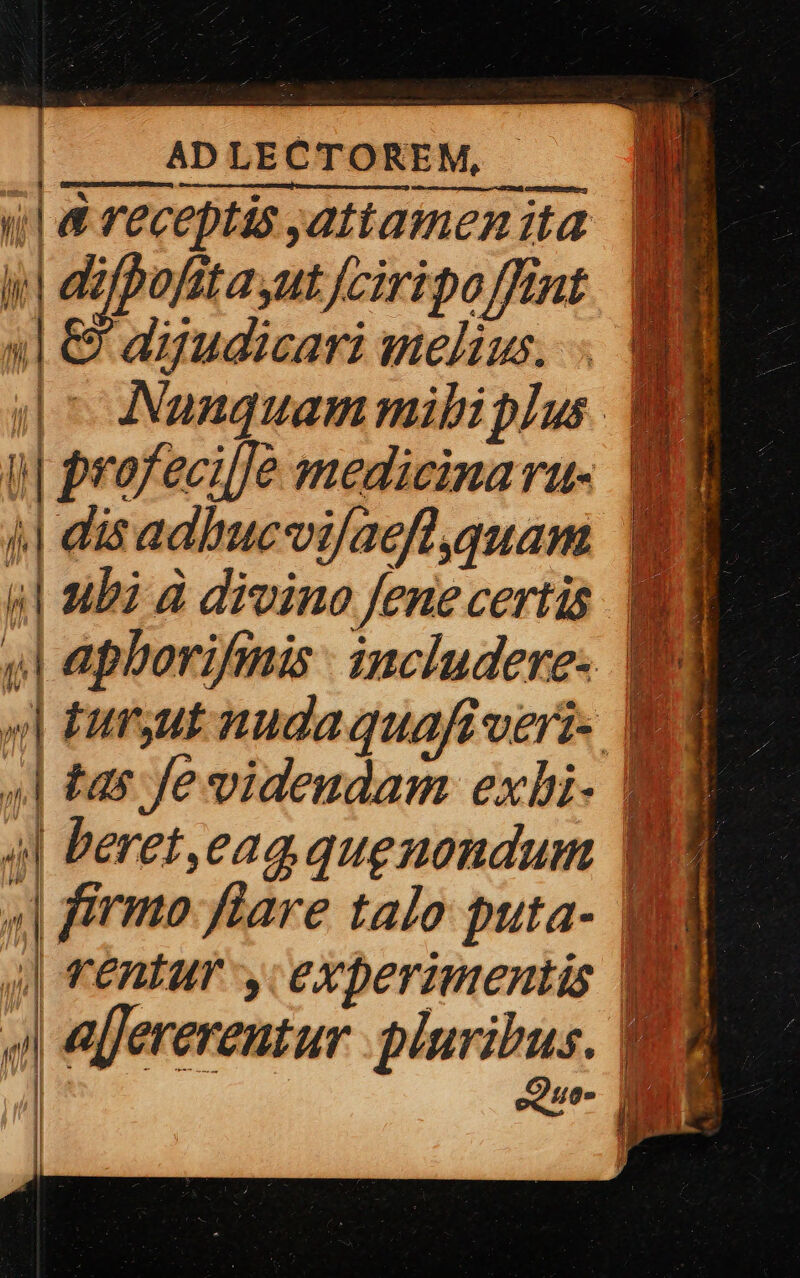 AD LECTOREM,
à receptis, attamen ita
diſpoſita, ut ſciri poſſint
& dijudicari melius.
Nunquam mihi plus
profeciſſe medicina ru-
dis adhuc viſa eſt, quam
ubi à divino ſene certis
aphoriſmis includere-
tur, ut nuda quaſi veri-
tas ſe videndam exhi-
beret, eaq; quę nondum
firmo ſtare talo puta-
rentur, experimentis
aſſererentur pluribus.
Quo-